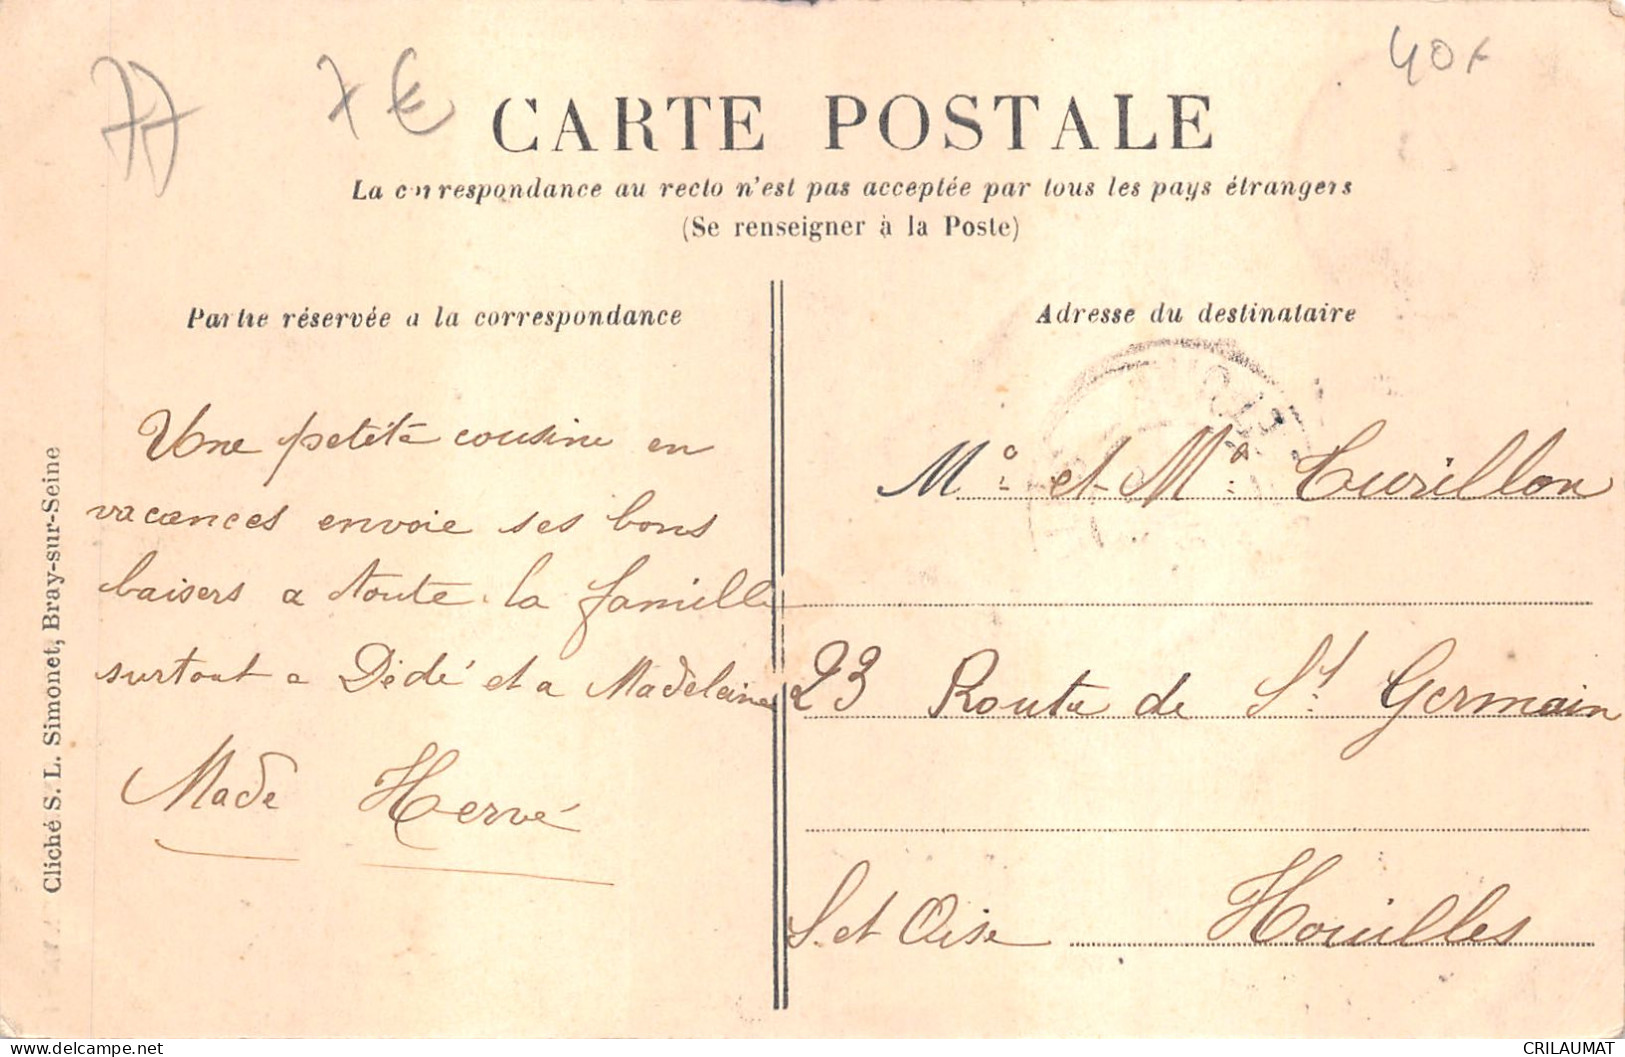 77 7€ 40F
CARTE POSTALE
La correspondance au recto n'est pas acceptée par tous les pays étrangers
(Se renseigner à la Poste)
Partie réservée a la correspondance
Une petite cousine en
vacances envoie ses bons
baisers a toute la famille
surtout a Dédé et a Madeleine
Made Hervé
Cliché S. L. Simonet, Bray-sur-Seine
Adresse du destinataire
Mo et Ma Turillon
23 Route de St Germain
S. et Oise Houilles
CRILAUMAT
delcampe.net